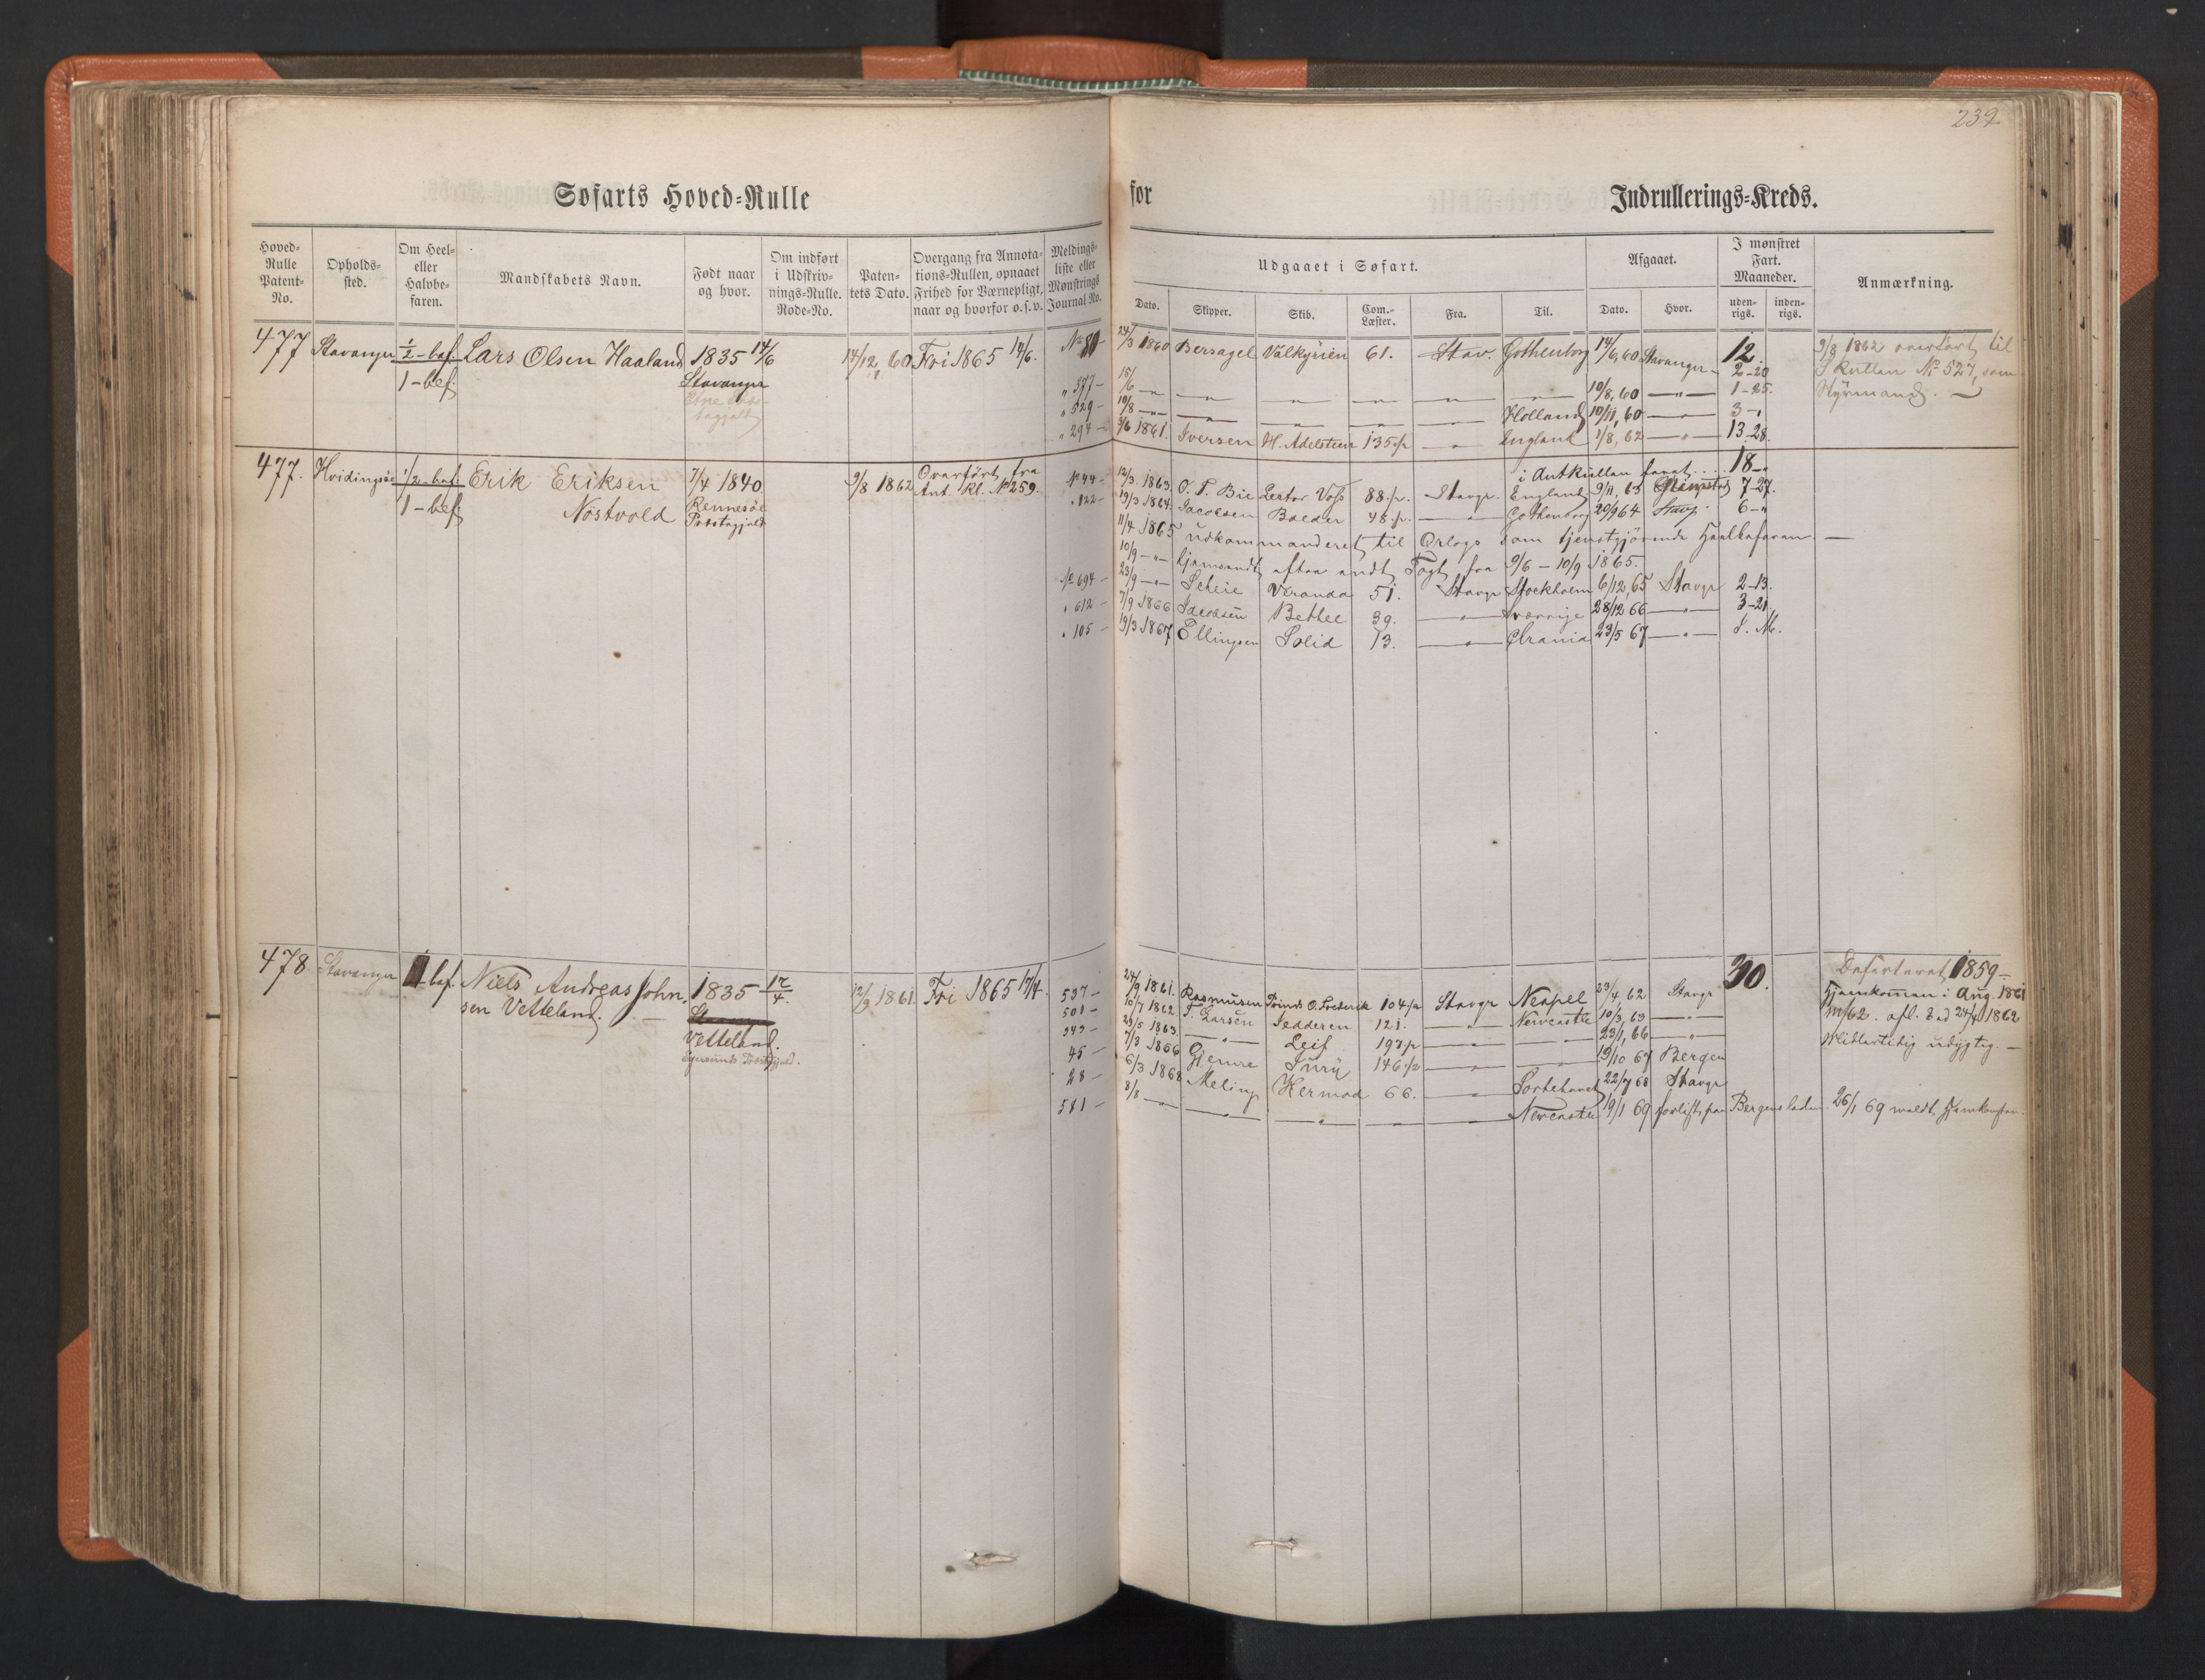 239
Søfarts Hoved-Rulle for Indrullerings-Kreds.
Hoved-Rulle Patent-No.
Opholds-sted.
Om Heel- eller Halvbe-faren.
Mandskabets Navn.
Født naar og hvor.
Om indført i Udskriv-nings-Rulle. Rode-No.
Paten-tets Dato.
Overgang fra Annota-tions-Rullen, opnaaet Frihed for Værnepligt, naar og hvorfor o. s. v.
Meldings-liste eller Mønstrings Journal No.
Udgaaet i Søfart.
Dato. Skipper. Skib. Com.-Læster. Fra. Til.
Afgaaet.
Dato. Hvor.
I mønstret Fart. Maaneder.
uden-rigs. inden-rigs.
Anmærkning.
477 Stavanger ½-bef. Lars Olsen Haaland 1835 14/6 14/12 60 Fri 1865 14/6. No 80 24/3 1860 Bersagel Valkyrien 61. Stav. Gothenborg 14/6, 60 Stavanger 12. 9/8 1862 overført til
1-bef. Stavanger „ 377 15/6 — „ — 10/8, 60 — „ — 2-20 S. Rullen No 527, som
„ 529 10/8 — „ — Holland 10/11, 60 — „ — 1-25. Styrmand.
3-„
„ 294 3/6 1861. Iversen H. Adelsteen 135 p England 1/8, 62 — „ — 13-28.
477. Hvidingsöe ½-bef. Erik Eriksen 7/4 1840 9/8 1862 Overført fra No 44 12/3. 1863. O. T. Bie Lector Voss 88. p. Stavgr. England 9/11, 63 7-27.
i Antrullen faret.... 18-„
1-bef. Nostvold Rennesöe Præstegjeld Ant. Rl. No 259. „ 122 19/3 1864. Jacobsen Balder 48. p. — „ — Gothenborg 20/9 64 Stavgr. 6-„
11/4 1865 udkommanderet til Orlogs som tjenstgjørende Heelbefaren —
10/9 — „ — hjemsendt efter endt Togt fra 9/6 - 10/9 1865.
No 694 23/9 — „ — Scheie Veranda 51. Stavgr Stockholm 6/12, 65 Stavgr 2-13.
„ 612 7/9 1866 Jacobsen Bethel 39. — „ — Sverrige 28/12 66 — „ — 3-21.
„ 105 19/3 1867 Ellingsen Solid 13. — „ — Chrania 23/5 67 — „ —
478 Stavanger 1-bef. Niels Andreas John 1835 17/4. 12/9 1861. Fri 1865 17/4. 537 24/9 1861. Rasmussen Prinds O. Frederik 104 p Stavgr Neapel 23/4, 62 Stavgr 30. Deserteret 1859 —
sen Vetteland. 501 10/7 1862. T. Larsen Jedderen 121. — „ — Newcastle 10/3, 63 — „ — Hjemkommen i Aug. 1861
Vetteland. 343 29/5 1863. — „ — Leif 197 p — „ — 23/1, 66 — „ — 24/4 1862
Egersunds Præstegjeld. 45 7/3 1866 Gjemre Juny 146 p — „ — 19/10 67 Bergen udygtig. —
28 6/3 1868 Meling Hermod 66. — „ — 22/7 68 Stavgr
581 8/8 — „ — Newcastle 19/1 69 forlist paa Bergens leden. 26/1 69 meldt Hjemkomsten.